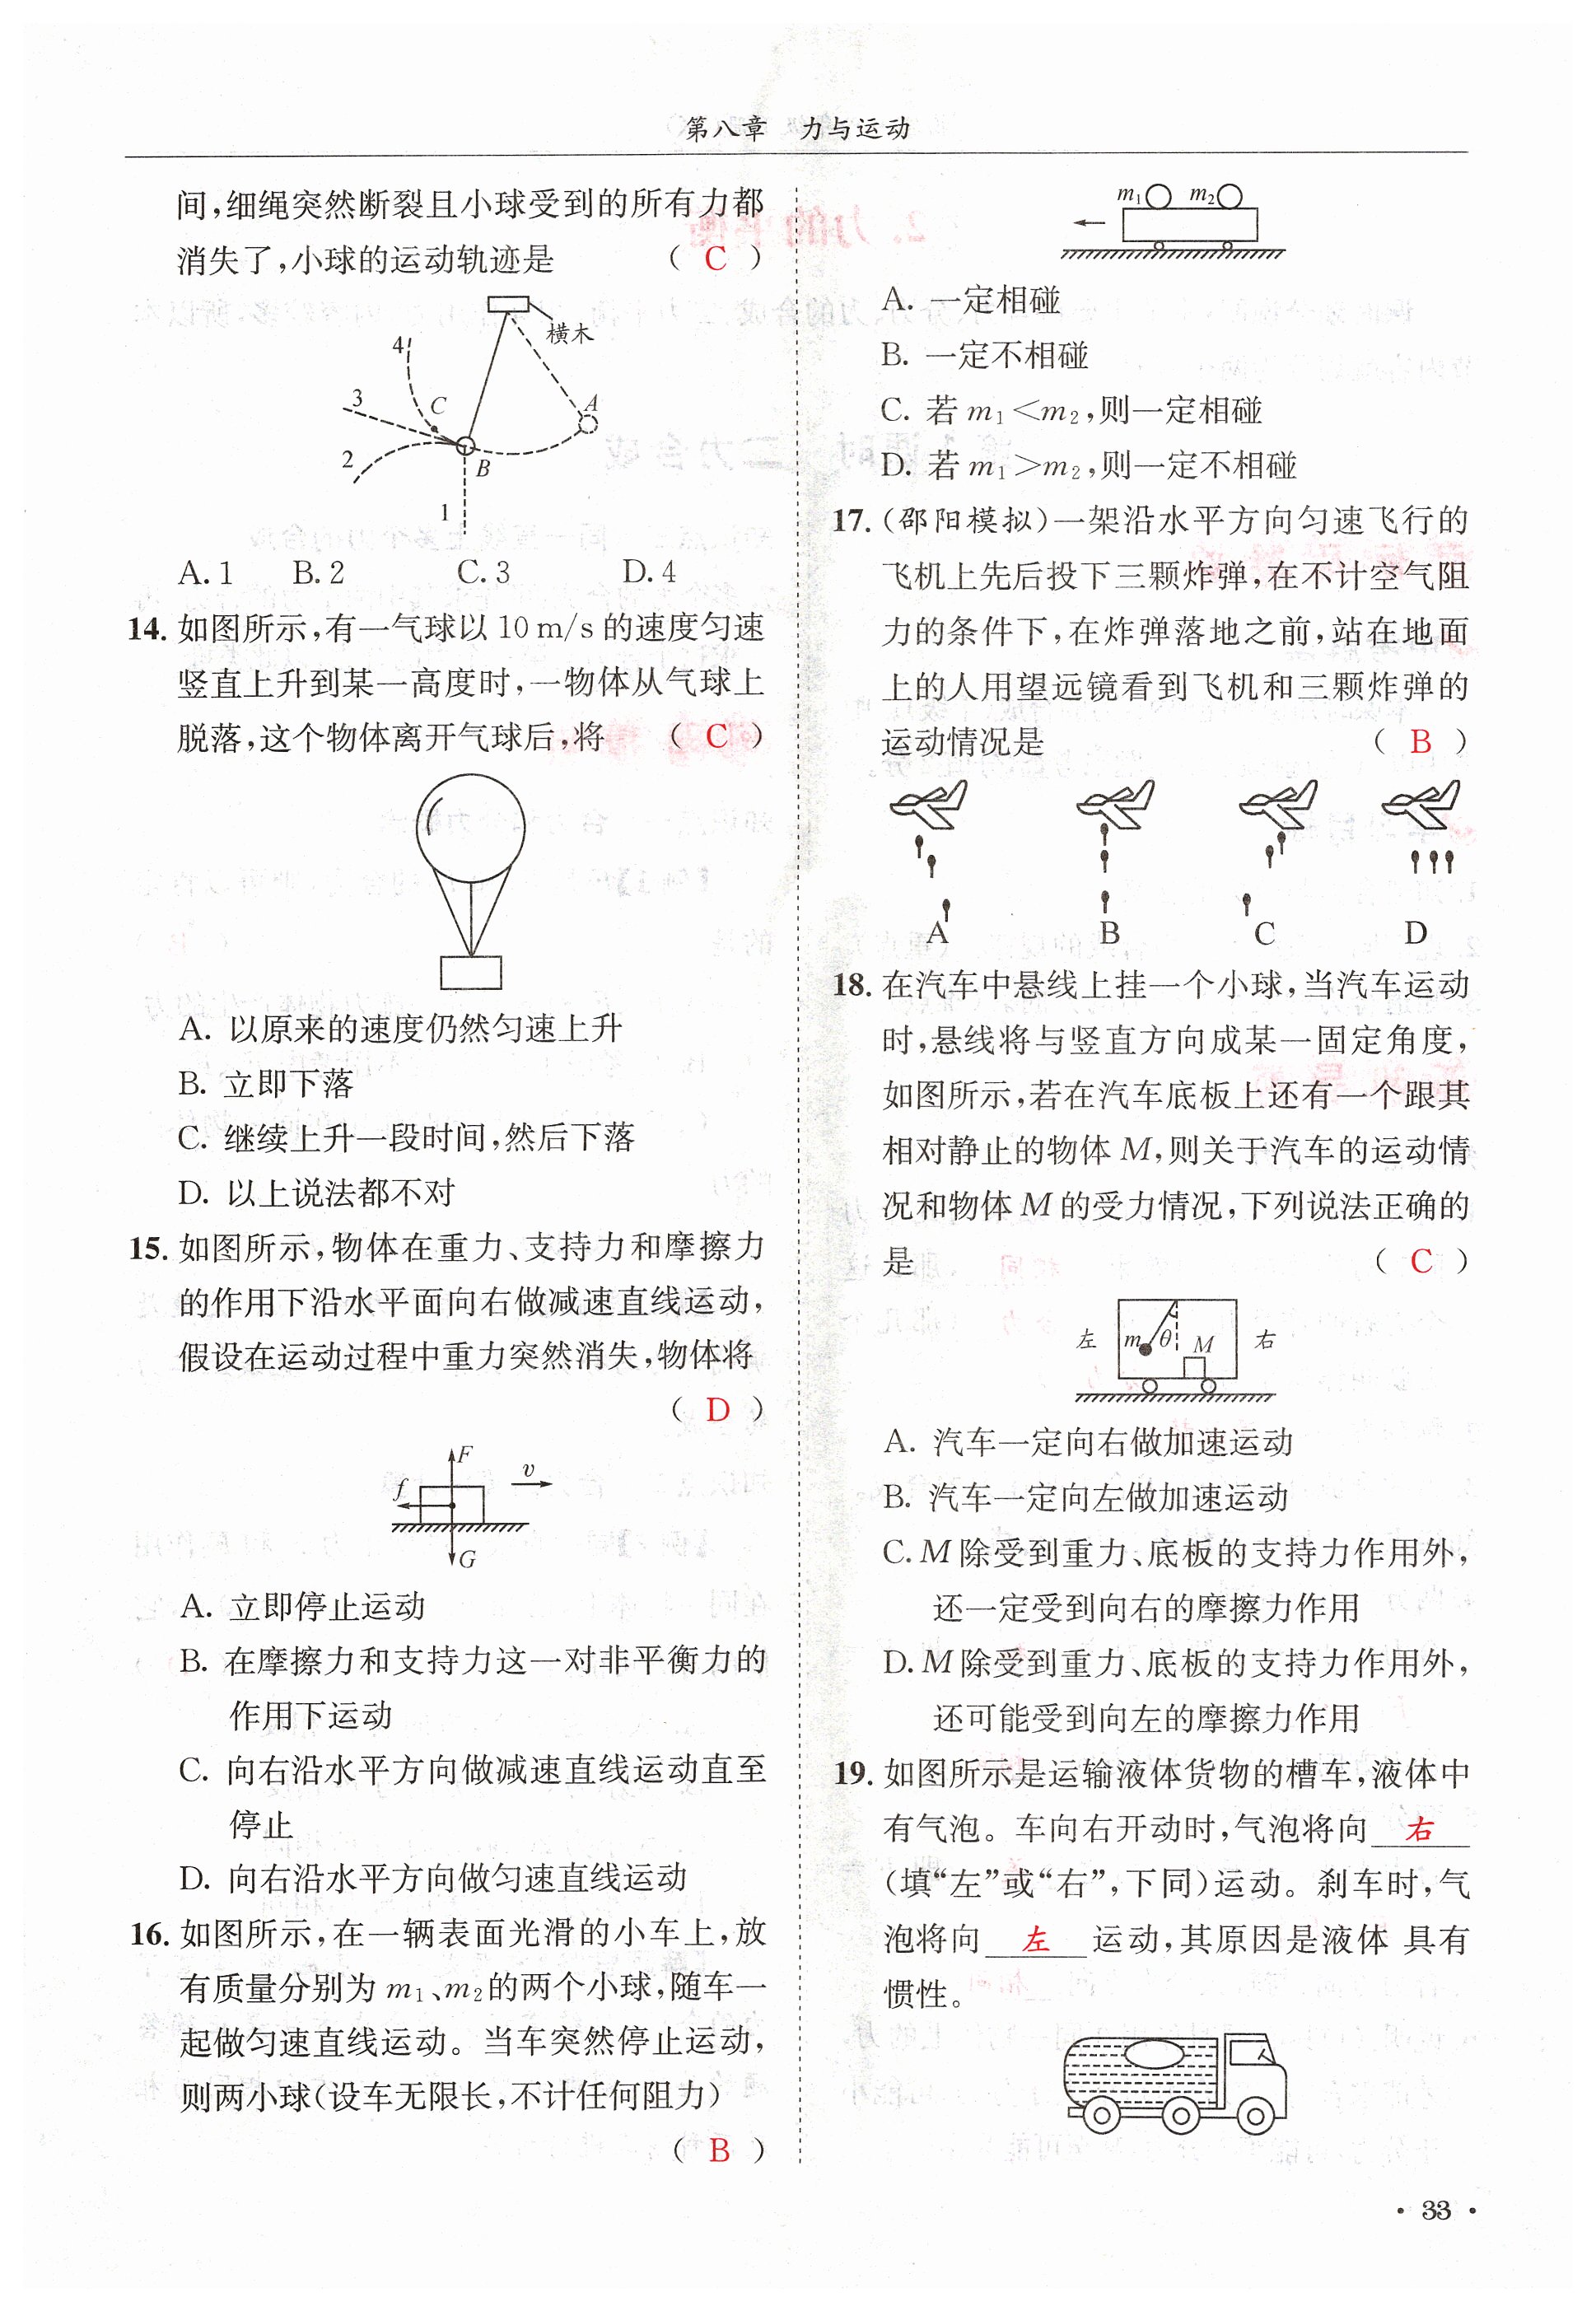 第八章　力与运动
间,细绳突然断裂且小球受到的所有力都
消失了,小球的运动轨迹是　（ C ）
横木
4
3
C
A
2
B
1
A. 1　B. 2　C. 3　D. 4
14. 如图所示,有一气球以 10 m/s 的速度匀速
竖直上升到某一高度时,一物体从气球上
脱落,这个物体离开气球后,将　（ C ）
A. 以原来的速度仍然匀速上升
B. 立即下落
C. 继续上升一段时间,然后下落
D. 以上说法都不对
15. 如图所示,物体在重力、支持力和摩擦力
的作用下沿水平面向右做减速直线运动,
假设在运动过程中重力突然消失,物体将
（ D ）
F
v
f
G
A. 立即停止运动
B. 在摩擦力和支持力这一对非平衡力的
作用下运动
C. 向右沿水平方向做减速直线运动直至
停止
D. 向右沿水平方向做匀速直线运动
16. 如图所示,在一辆表面光滑的小车上,放
有质量分别为 m₁、m₂的两个小球,随车一
起做匀速直线运动。当车突然停止运动,
则两小球(设车无限长,不计任何阻力)
（ B ）
m₁　m₂
A. 一定相碰
B. 一定不相碰
C. 若 m₁＜m₂,则一定相碰
D. 若 m₁＞m₂,则一定不相碰
17. (邵阳模拟)一架沿水平方向匀速飞行的
飞机上先后投下三颗炸弹,在不计空气阻
力的条件下,在炸弹落地之前,站在地面
上的人用望远镜看到飞机和三颗炸弹的
运动情况是　（ B ）
A　B　C　D
18. 在汽车中悬线上挂一个小球,当汽车运动
时,悬线将与竖直方向成某一固定角度,
如图所示,若在汽车底板上还有一个跟其
相对静止的物体 M,则关于汽车的运动情
况和物体 M 的受力情况,下列说法正确的
是　（ C ）
左　m　θ　M　右
A. 汽车一定向右做加速运动
B. 汽车一定向左做加速运动
C. M 除受到重力、底板的支持力作用外,
还一定受到向右的摩擦力作用
D. M 除受到重力、底板的支持力作用外,
还可能受到向左的摩擦力作用
19. 如图所示是运输液体货物的槽车,液体中
有气泡。车向右开动时,气泡将向 右
(填“左”或“右”,下同)运动。刹车时,气
泡将向 左 运动,其原因是液体 具有
惯性。
· 33 ·